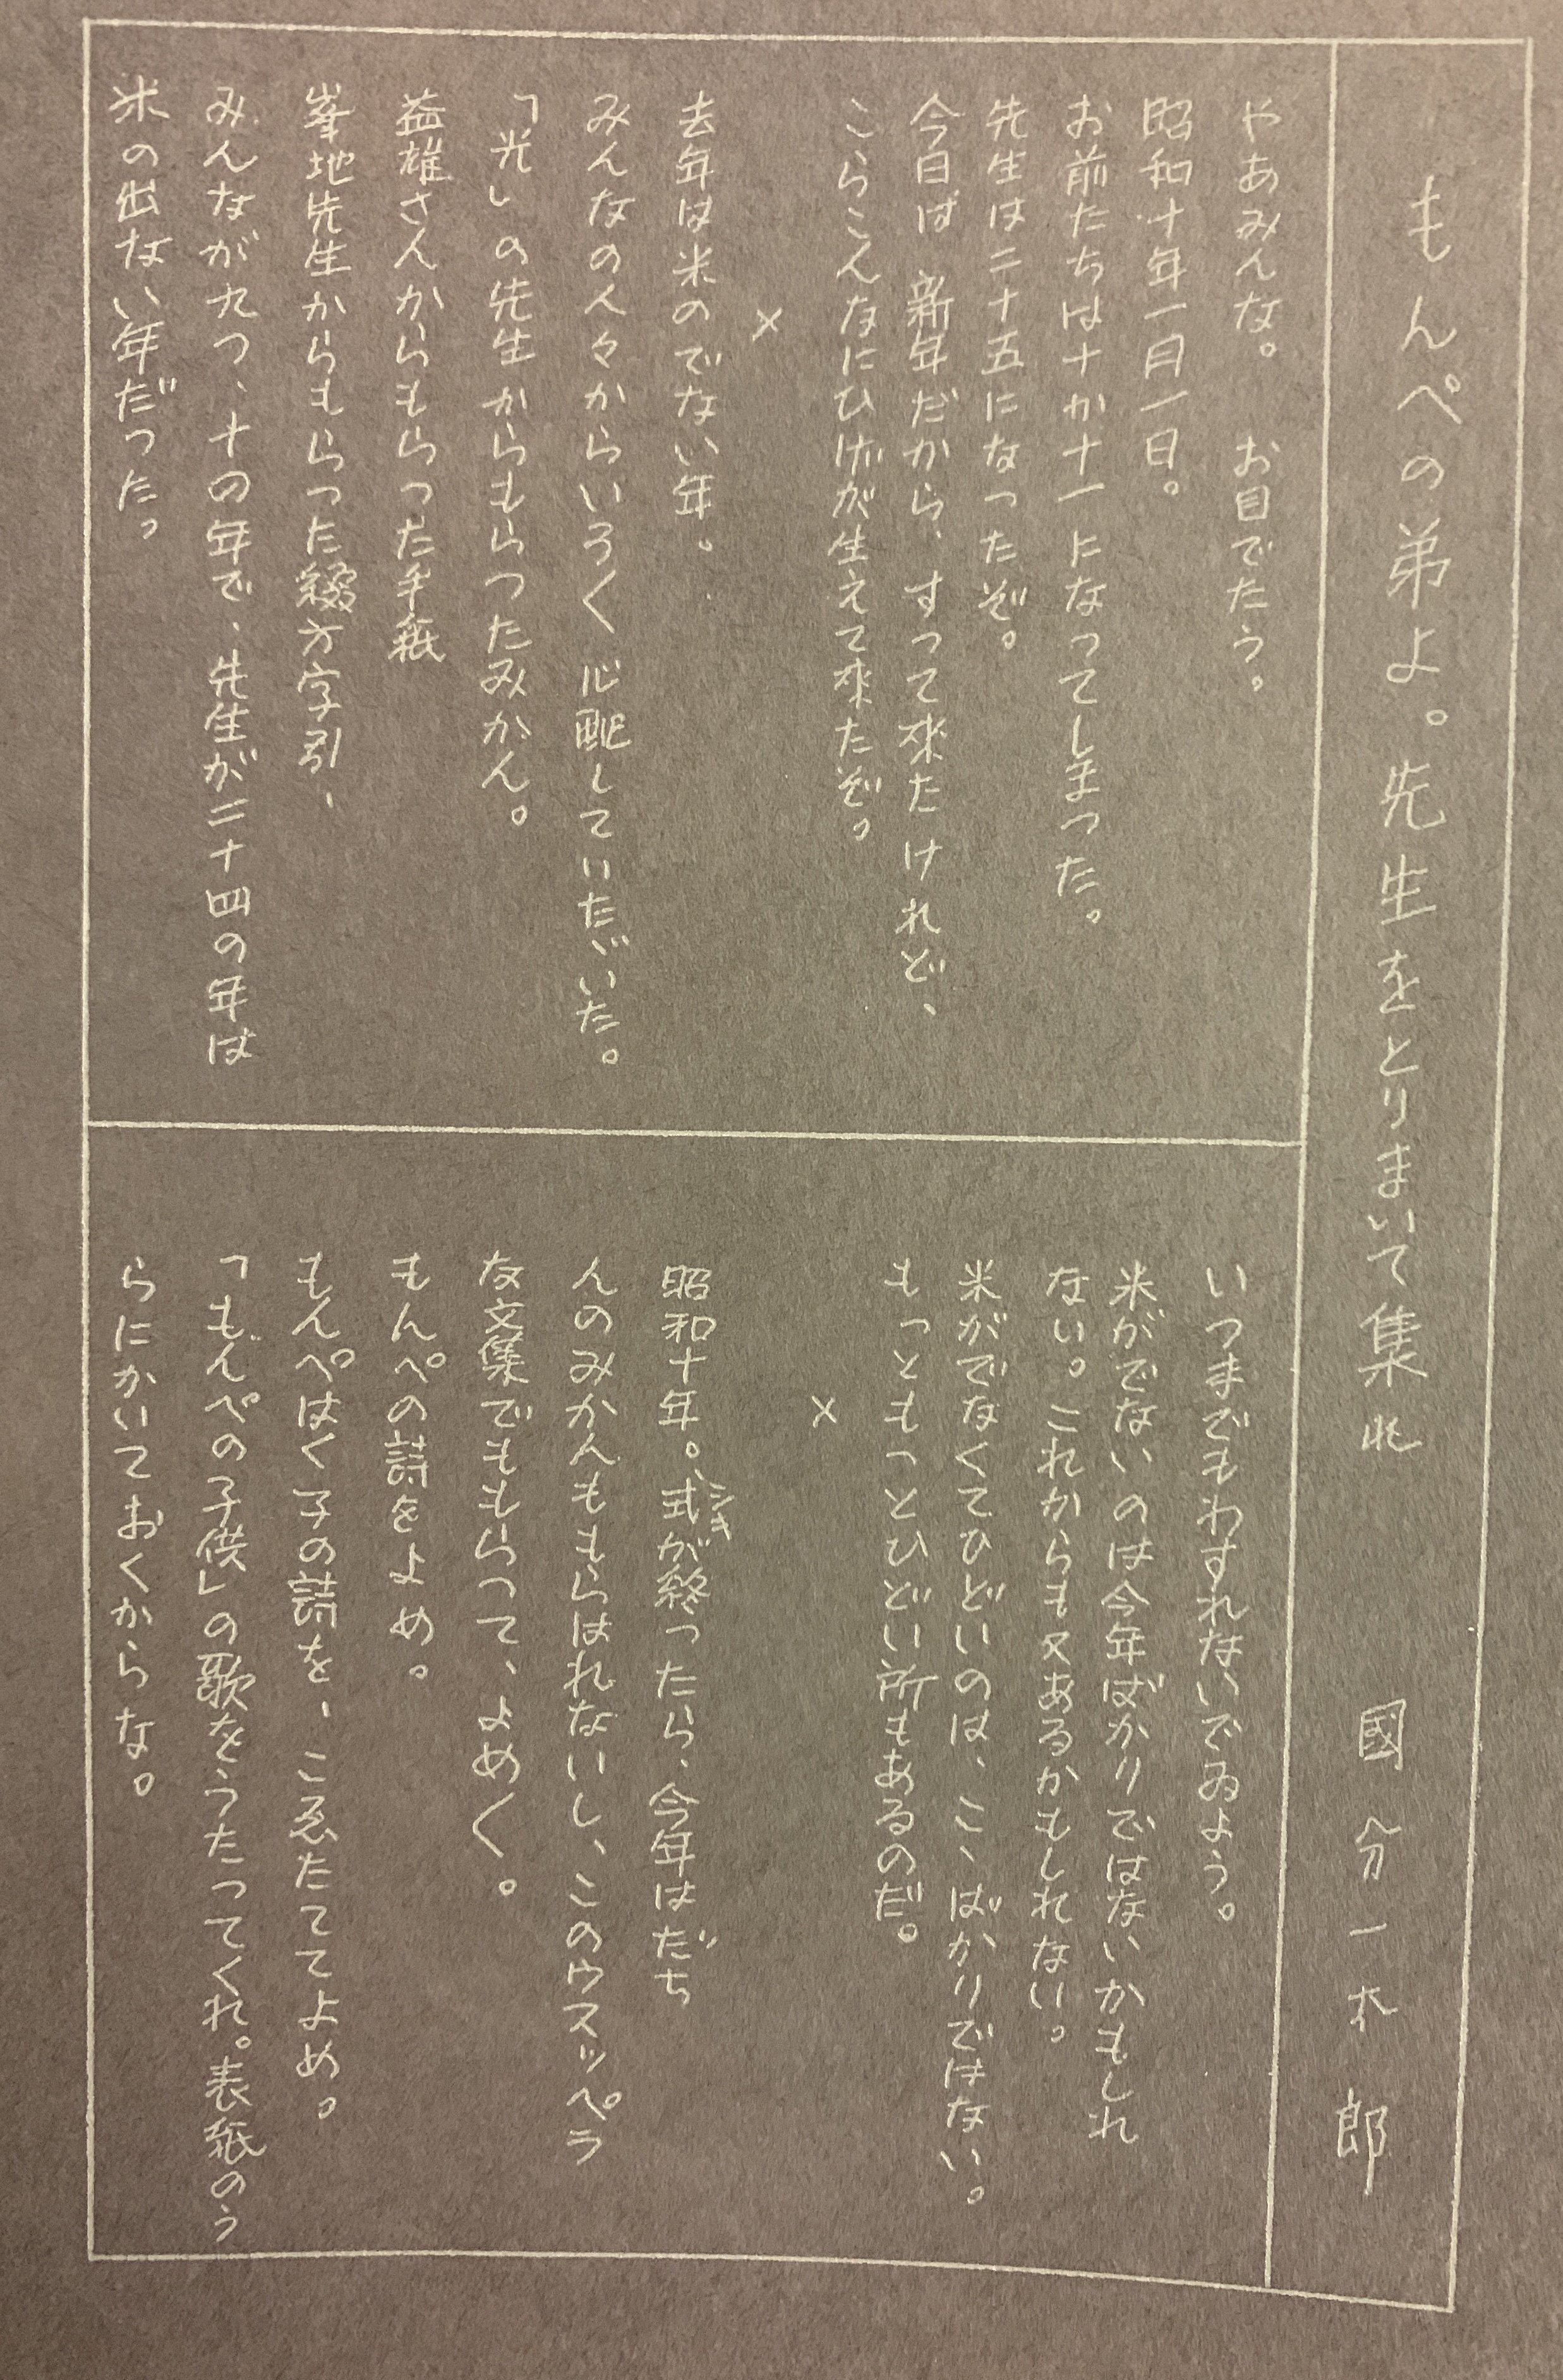 もんぺの弟よ。先生をとりまいて集れ　國分一太郎
やあみんな。　お目でたう。
昭和十年一月一日。
お前たちは十か十一になってしまつた。
先生は二十五になったぞ。
今日は　新年だから、すって來たけれど、
こらこんなにひげが生えて來たぞ。
×
去年は米のでない年。
みんなの人々からいろ〱心配していたゞいた。
「光」の先生からもらつたみかん。
益雄さんからもらつた手紙
峯地先生からもらつた綴方字引、
みんなが九つ、十の年で、先生が二十四の年は
米の出ない年だつた。
いつまでもわすれないでゐよう。
米がでないのは今年ばかりではないかもしれ
ない。これからも又あるかもしれない。
米がでなくてひどいのは、こゝばかりではない。
もっともつとひどい所もあるのだ。
×
昭和十年。式が終つたら、今年はだち
シキ
んのみかんももらはれないし、このウスッペラ
な文集でももらつて、よめ〱。
もんぺの詩をよめ。
もんぺはく子の詩を、こゑたてゝよめ。
「もんぺの子供」の歌をうたつてくれ。表紙のう
らにかいておくからな。